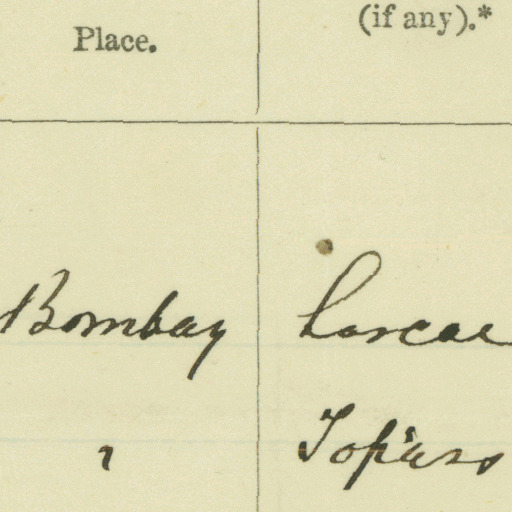 Place.
(if any).*
Bombay
Lascar
"
Topass